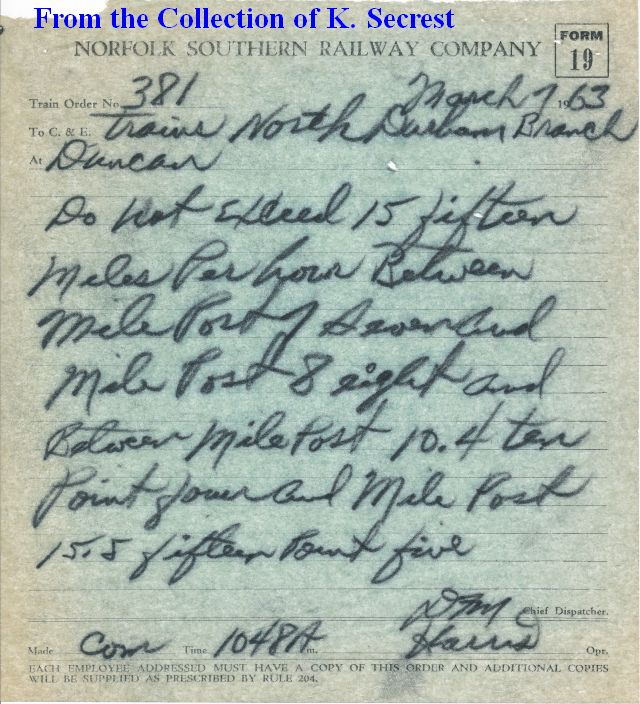 From the Collection of K. Secrest
NORFOLK SOUTHERN RAILWAY COMPANY
FORM
19
Train Order No. 381 March 7 1963
To C. & E. Trains North Durham Branch
At Duncan
Do not Exceed 15 fifteen
Miles Per hour Between
Mile Post 7 Seven and
Mile Post 8 eight and
Between Mile Post 10.4 ten
Point four and Mile Post
15.5 fifteen Point five
DTM Chief Dispatcher.
Made Com Time 1048A m. Harris Opr.
EACH EMPLOYEE ADDRESSED MUST HAVE A COPY OF THIS ORDER AND ADDITIONAL COPIES
WILL BE SUPPLIED AS PRESCRIBED BY RULE 204.